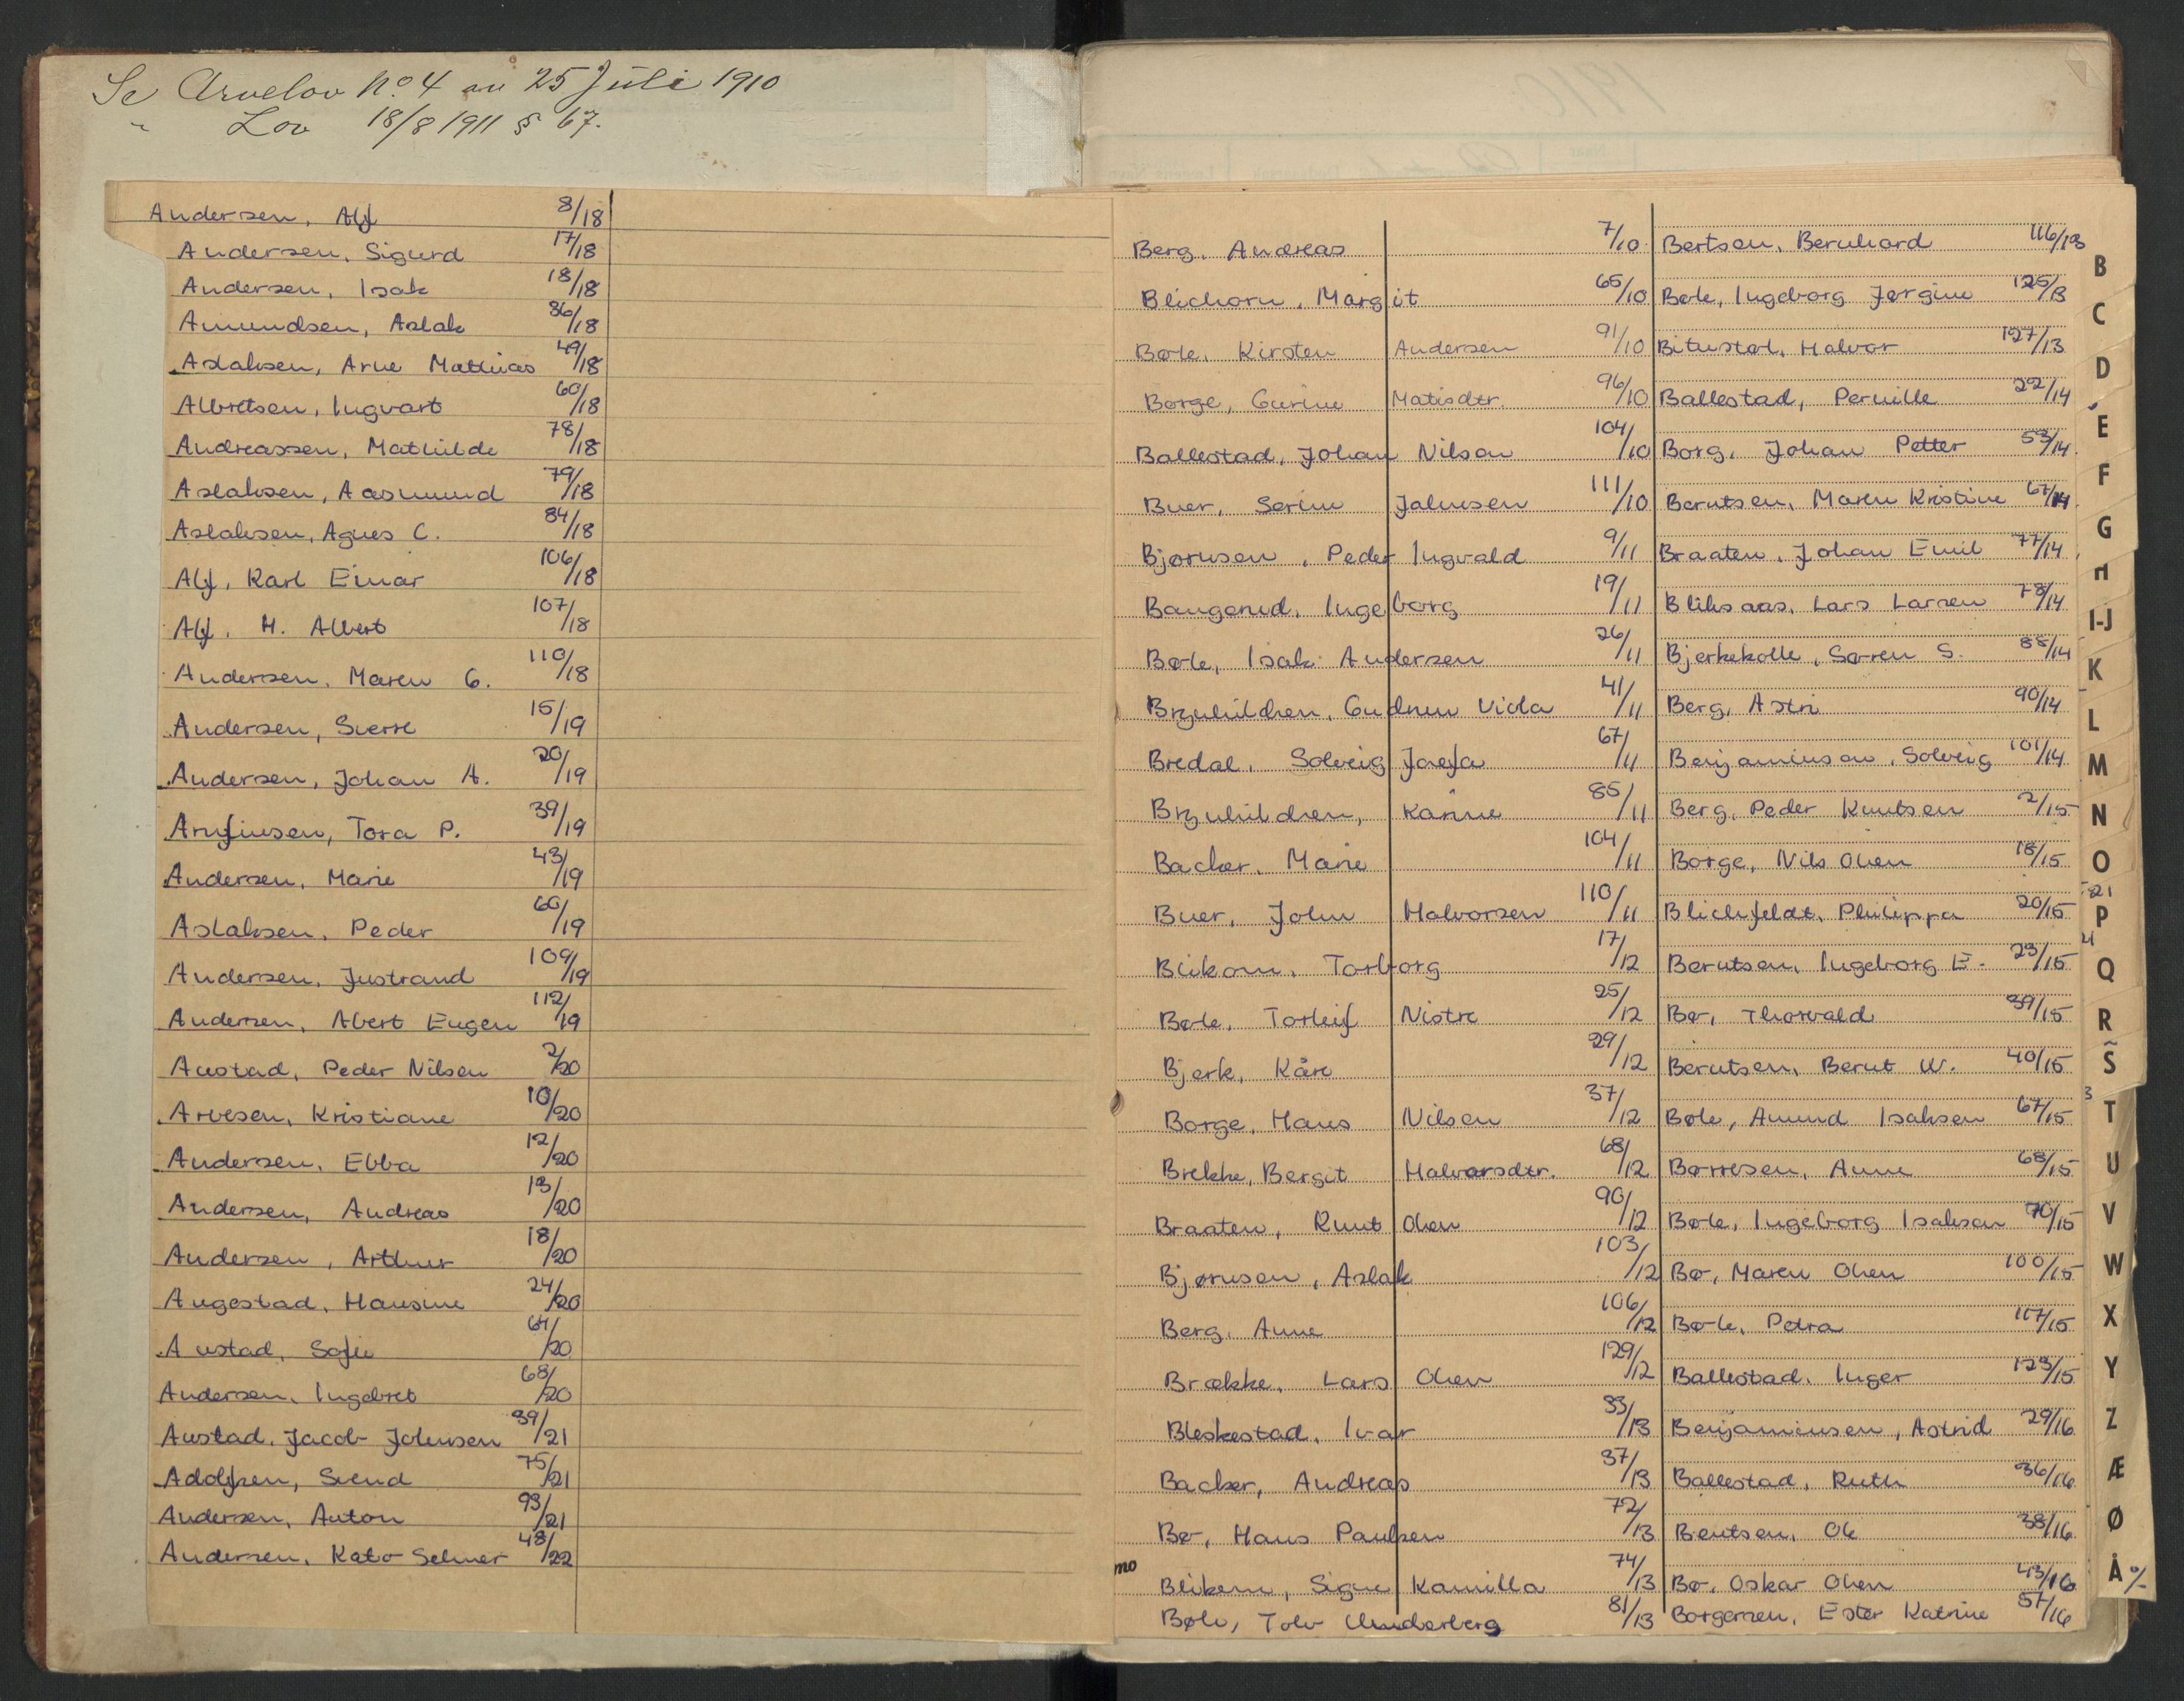 Se Arvelov No. 4 av 25 Juli 1910
" Lov 18/8 1911 § 67.
Andersen, Alf 8/18
Andersen, Sigurd 17/18
Andersen, Isak 18/18
Amundsen, Aslak 36/18
Aslaksen, Arne Mathias 49/18
Albretsen, Ingvart 60/18
Andreassen, Mathilde 78/18
Aslaksen, Aasmund 79/18
Aslaksen, Agnes C. 84/18
Alf, Karl Einar 106/18
Alf, H. Albert 107/18
Andersen, Maren G. 110/18
Andersen, Sverre 15/19
Andersen, Johan A. 20/19
Arnfinsen, Tora P. 39/19
Andersen, Marie 43/19
Aslaksen, Peder 60/19
Andersen, Justrand 109/19
Andersen, Abert Eugen 112/19
Austad, Peder Nilsen 2/20
Arvesen, Kristiane 10/20
Andersen, Ebba 12/20
Andersen, Andreas 13/20
Andersen, Arthur 18/20
Augestad, Hansine 24/20
Austad, Sofie 64/20
Andersen, Ingebret 68/20
Austad, Jacob Johnsen 39/21
Adolfsen, Svend 75/21
Andersen, Anton 93/21
Andersen, Kato Selmer 48/22
Berg, Andreas 7/10
Blichorn, Margit 65/10
Børle, Kirsten Andersen 91/10
Borge, Gurine Matisdtr. 96/10
Ballestad, Johan Nilsen 104/10
Buer, Serine Johnsen 111/10
Bjørnsen, Peder Ingvald 9/11
Baugerud, Ingeborg 19/11
Bøle, Isak Andersen 26/11
Brynhildsen, Gudrun Viola 41/11
Bredal, Solveig Josefa 67/11
Brynhildsen, Karine 85/11
Backer, Marie 104/11
Buer, John Halvorsen 110/11
Blikom, Torborg 17/12
Bøle, Torleif Nistre 25/12
Bjerk, Kåre 29/12
Borge, Hans Nilsen 37/12
Brekke, Bergit Halvorsdtr. 68/12
Braaten, Knut Olsen 90/12
Bjørnsen, Aslak 103/12
Berg, Anne 106/12
Brække, Lars Olsen 129/12
Bleskestad, Ivar 33/13
Backer, Andreas 37/13
Bø, Hans Paulsen 72/13
mo
Blikom, Signe Kamilla 74/13
Bøle, Tolv 81/13
Bertsen, Bernhard 116/13
Bøle, Ingeborg Jørgine 125/13
Bitustøl, Halvor 127/13
Ballestad, Pernille 22/14
Borg, Johan Petter 53/14
Berntsen, Maren Kristine 67/14
Braaten, Johan Emil 77/14
Bliksaas, Lars Larsen 78/14
Bjerkekolle, Søren S. 88/14
Berg, Astri 90/14
Benjaminsen, Solveig 101/14
Berg, Peder Knutsen 2/15
Borge, Nils Olsen 18/15
Blichfeldt, Philippa 20/15
Berntsen, Ingeborg E. 23/15
Bø, Thorvald 39/15
Berntsen, Bernt W. 40/15
Bøle, Amund Isaksen 67/15
Børresen, Anne 68/15
Bøle, Ingeborg Isaksen 70/15
Bø, Maren Olsen 100/15
Bøle, Petra 117/15
Ballestad, Inger 123/15
Benjaminsen, Astrid 29/16
Ballestad, Ruth 36/16
Bentsen, Ole 38/16
Bø, Oskar Olsen 43/16
Borgersen, Ester Katrine 57/16
B
C
D
E
F
G
H
I-J
K
L
M
N
O
P
Q
R
S
T
U
V
W
X
Y
Z
Æ
Ø
Å